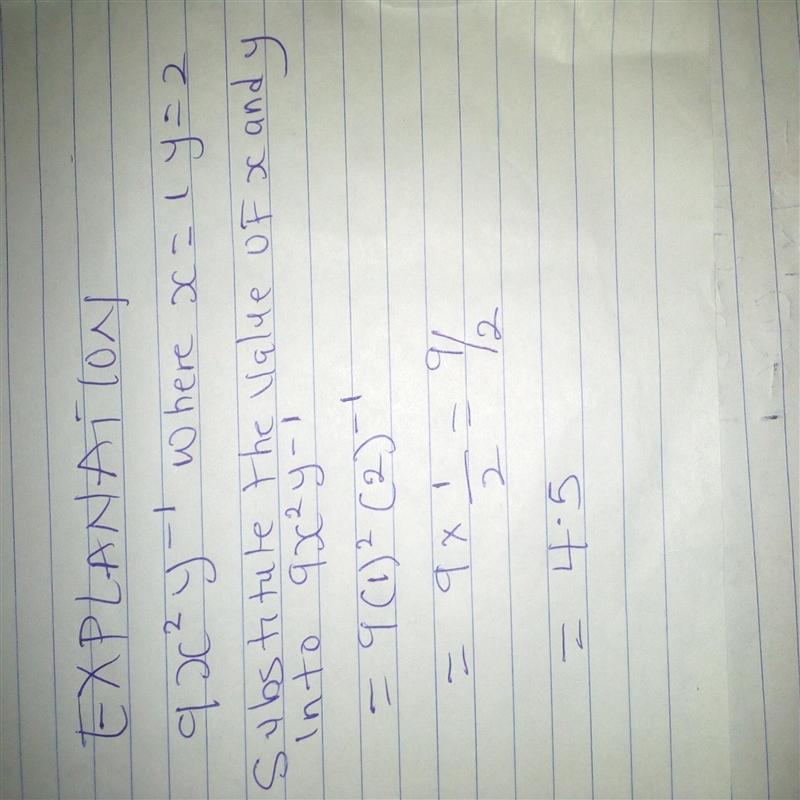 EXPLANATION
9x²y⁻¹ where x = 1 y = 2
Substitute the value OF x and y
into 9x²y-1
= 9(1)² (2)⁻¹
= 9 x 1/2 = 9/2
= 4.5